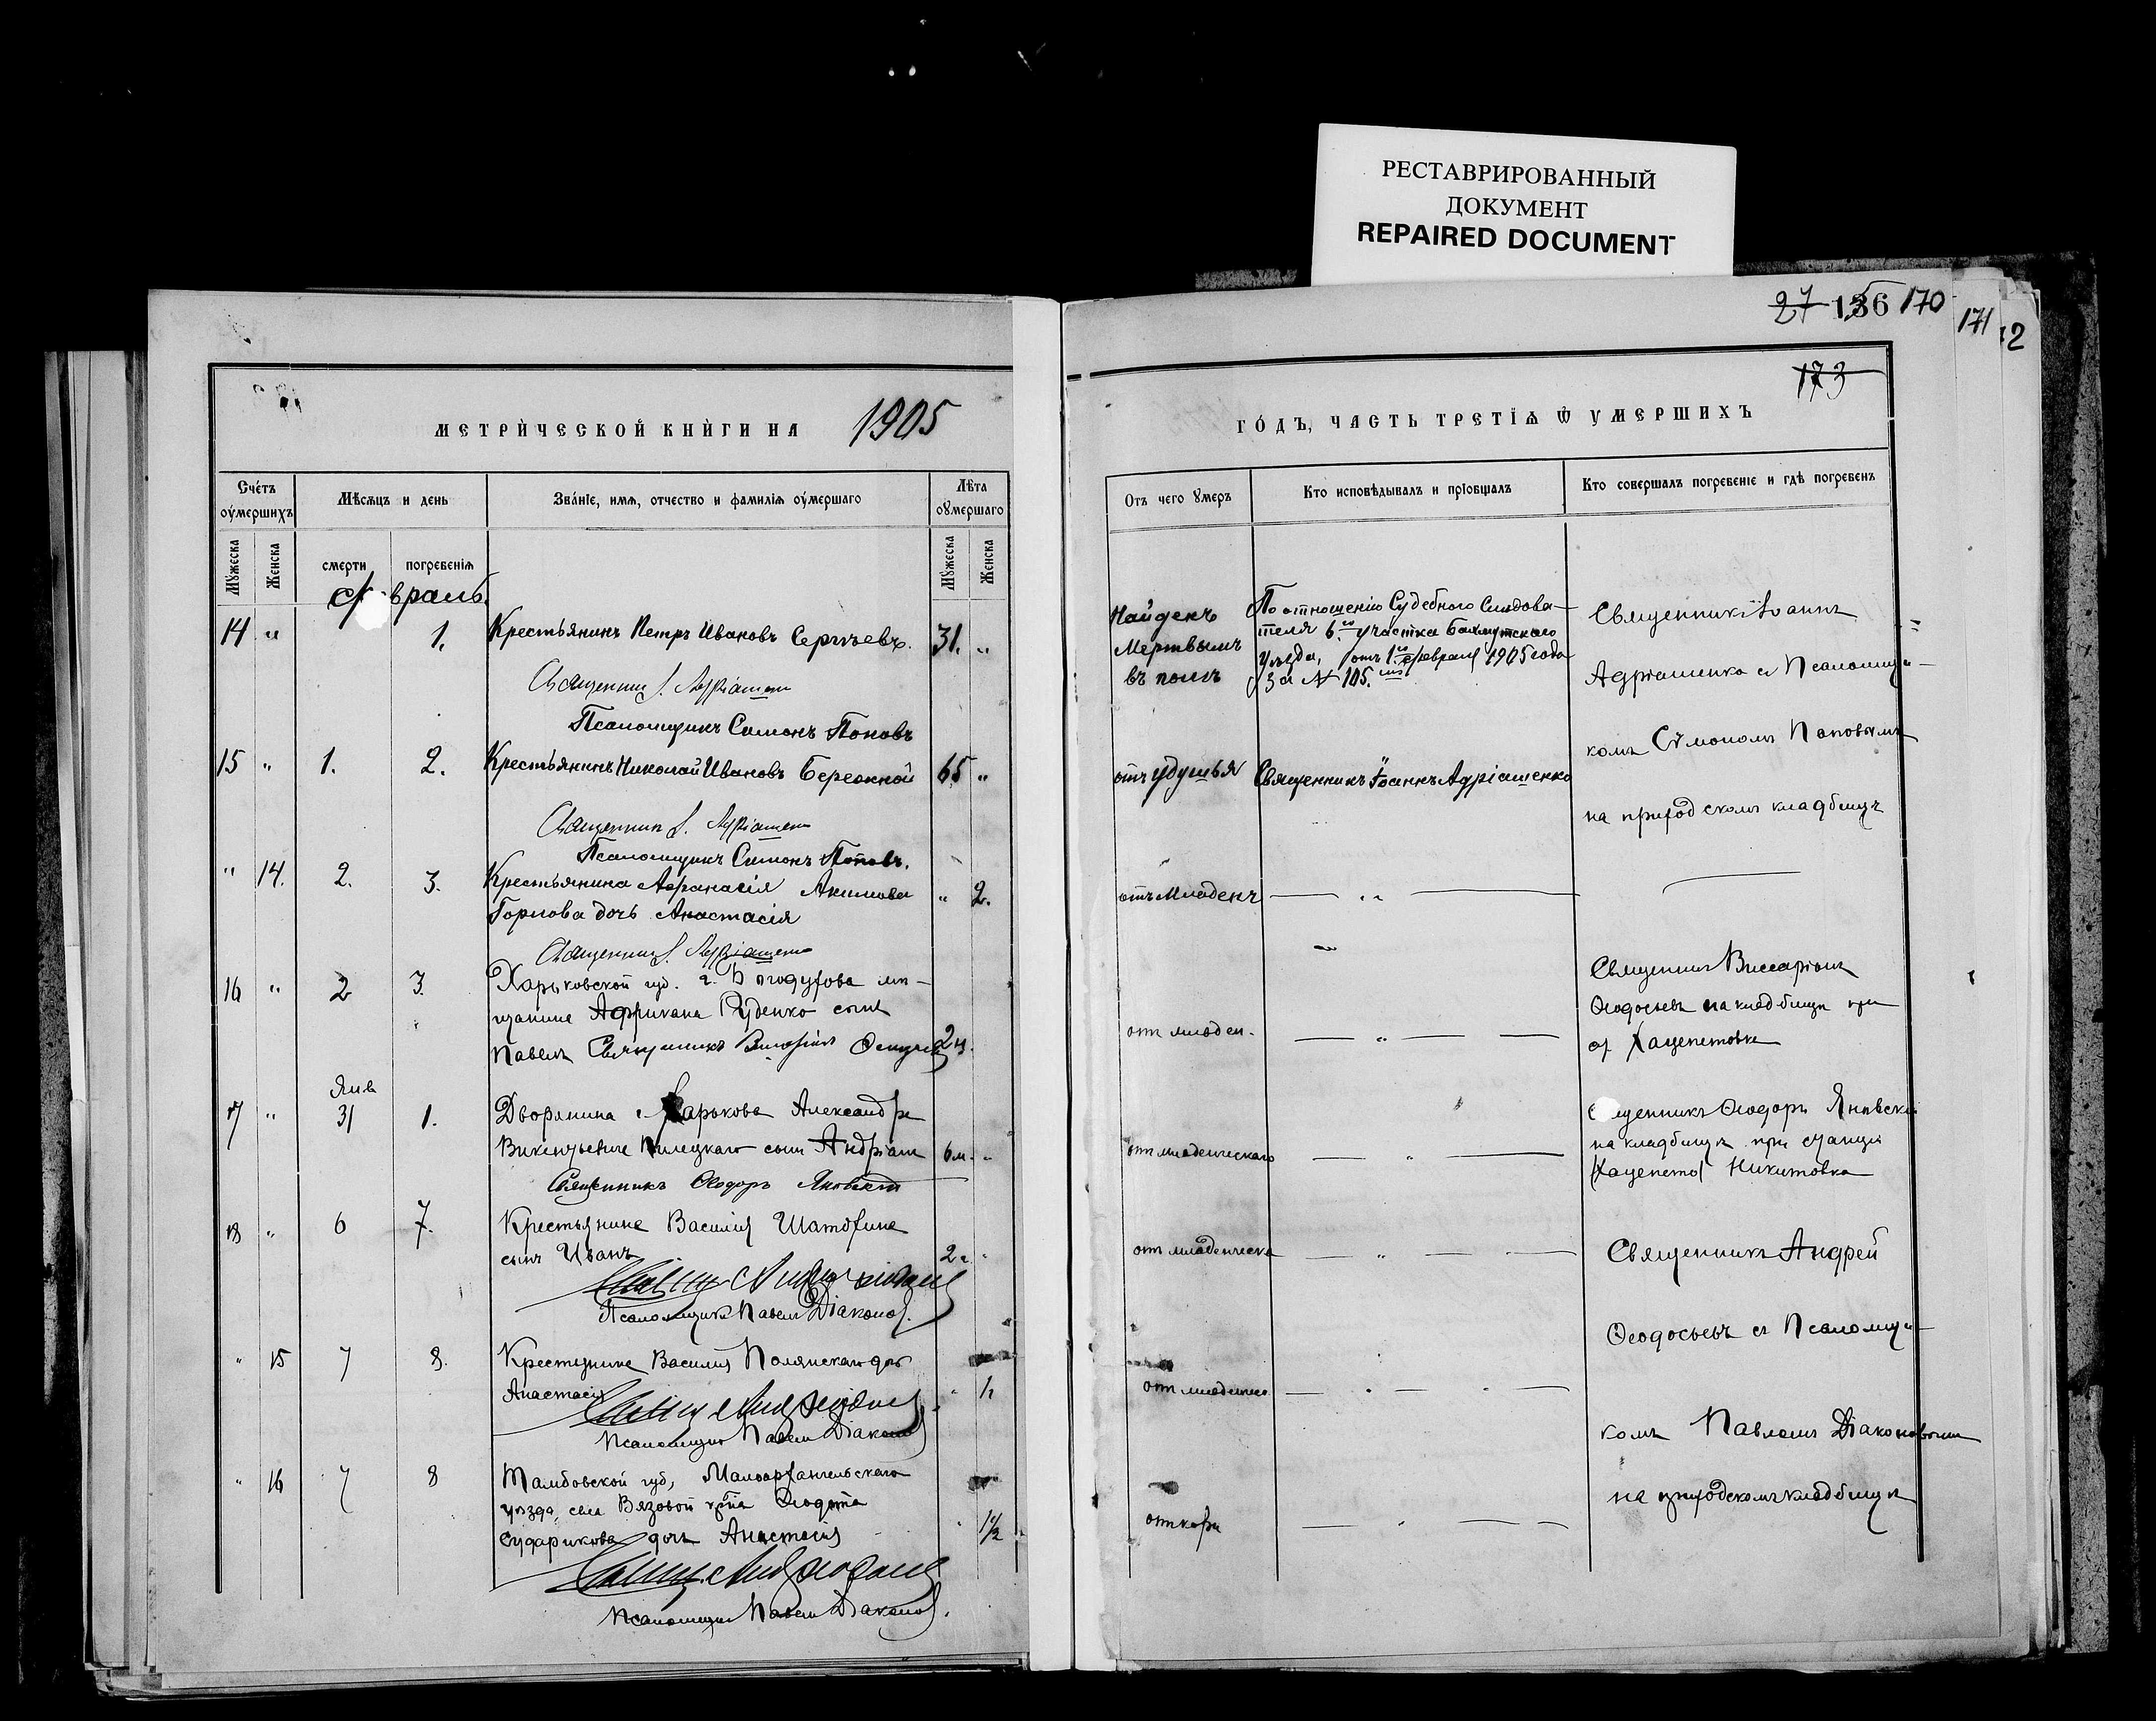 РЕСТАВРИРОВАННЫЙ
ДОКУМЕНТ
REPAIRED DOCUMENT
27 136 170
171
2
173
МЕТРИ́ЧЕСКОЙ КНИ́ГИ НА 1905
Сче́тъ оу҆мершихъ
Мѣсѧцъ и день
Зва́нїе, имѧ, отчество и фамилїѧ оу҆мершаго
Лѣта оумершаго
Мꙋжеска
Женска
смерти
погребенїѧ
Мꙋжеска
Женска
Февраль.
14 " 1. Крестьянинъ Петръ Ивановъ Сергѣевъ. 31. "
Священникъ І. Адріашенко
Псаломщикъ Симонъ Поповъ
15 " 1. 2. Крестьянинъ Николай Ивановъ Бережной 65 "
Священникъ І. Адріашенко
Псаломщикъ Симонъ Поповъ.
" 14. 2. 3. Крестьянина Афанасія Акимова " 2.
Горлова дочь Анастасія
Священникъ І. Адріашенко
16 " 2 3. Харьковской губ. г. Богодухова мѣ-
щанина Африкана Руденко сынъ
Павелъ Священникъ 2 н.
Янв
17 " 31 1. Дворянина г. Харькова Александра
Викентьевича Пилецкаго сынъ Андріанъ 6 м. "
Священникъ Ѳеодоръ Яновскій
18 " 6 7. Крестьянина Василія Шатохина
сынъ Иванъ 2 г. "
Псаломщикъ Павелъ Діаконов.
" 15 7 8. Крестьянина Василія Полянскаго дочь
Анастасія "
Псаломщикъ Павелъ Діаконов
" 16 7 8 Тамбовской губ, Малоархангельскаго
уѣзда, села Вязовой кр-на Ѳедота
Сударикова дочь Анастасія " 1½
Псаломщикъ Павелъ Діаконов.
ГО́ДЪ, ЧАСТЬ ТРЕТЇѦ Ѿ УМЕРШИХЪ
Отъ чего ꙋмеръ
Кто исповѣдывалъ и прїобщалъ
Кто совершалъ погребенїе и гдѣ погребенъ
Найденъ
Мертвымъ
въ полѣ
По отношенію Судебного Слѣдова-
теля 6го участка Бахмутскаго
Уѣзда, отъ 1го февраля 1905 года
За № 105.
Священникъ Іоаннъ
Адріашенко съ Псаломщи-
комъ Сѵмономъ Поповымъ
на приходскомъ кладбищѣ
отъ удушья Священникъ Іоаннъ Адріашенко
отъ Младенч — " —
отъ младен. — " — —
Священникъ Виссаріонъ
Ѳеодосьевъ на кладбищѣ при
ст Хацепетовка
отъ младенческаго — " —
Священникъ Ѳеодоръ Яновскій
на кладбищѣ при станціи
Хацепетовка Никитовка
отъ младенческа — " — —
Священникъ Андрей
Ѳеодосьевъ съ Псаломщи-
комъ Павломъ Діаконовымъ
на приходскомъ кладбищѣ
отъ младенческ — " — " —
отъ кори — " — —